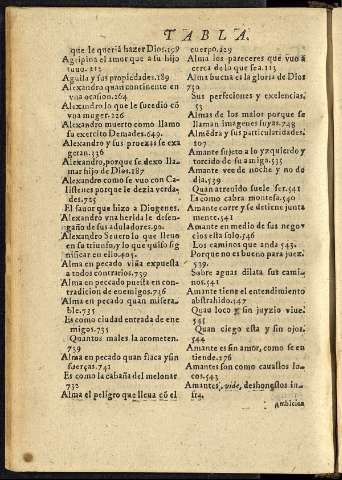 TABLA.
que le queriã hazer Dios.159
Agripina el amor que a su hijo
tuuo. 212
Aguila y sus propiedades.189
Alexandro quan continente en
vna ocasion.264
Alexandro lo que le sucedio cõ
vna muger.126
Alexandro muerto como llamo
su exercito Demades.649.
Alexandro y sus proezas se exa
geran.336
Alexandro, porque se dexo lla-
mar hijo de Dios.187
Alexandro como se vuo con Ca-
listenes porque le dezia verda-
des.725
El fauor que hizo a Diogenes.
Alexandro vna herida le desen-
gaño de sus aduladores.90.
Alexandro Seuero lo que lleuo
en su triunfo, y lo que quiso sig
nificar en ello.405.
Alma en pecado viña expuesta
a todos contrarios.739
Alma en peccado puesta en con-
tradicion de enemigos.736
Alma en peccado quan misera,
ble.735
Es como ciudad entrada de ene
migos.735
Quantos males la acometen.
739
Alma en pecado quan flaca y sin
fuerças.741
Es como la cabaña del melonar
732
Alma el peligro que lleua cõ el
cuerpo.229
Alma los pareceres que vuo a
cerca de lo que sea.113
Alma buena es la gloria de Dios
730
Sus perfeciones y excelencias.
53
Almas de los malos porque se
llaman imagenes suyas.749
Almẽdra y sus particularidades.
107
Amante sujeto a lo yzquierdo y
torcido de su amiga.535
Amante vee de noche y no de
dia.539
Quan atreuido suele ser.541
Es como cabra montesa.540
Amante corre y se detiene junta
mente.541
Amante en medio de sus nego-
cios esta solo.546
Los caminos que anda 545.
Porque no es bueno para juez.
539.
Sobre aguas dilata sus cami-
nos.541
Amante tiene el entendimiento
abstrahido.547
Quan loco y sin juyzio viue.
541
Quan ciego esta y sin ojos.
544
Amante es sin amor, como se en
tiende.276
Amantes son como cauallos lo-
cos.543
Amantes, vide, deshonestos in-
fra.
Ambicion